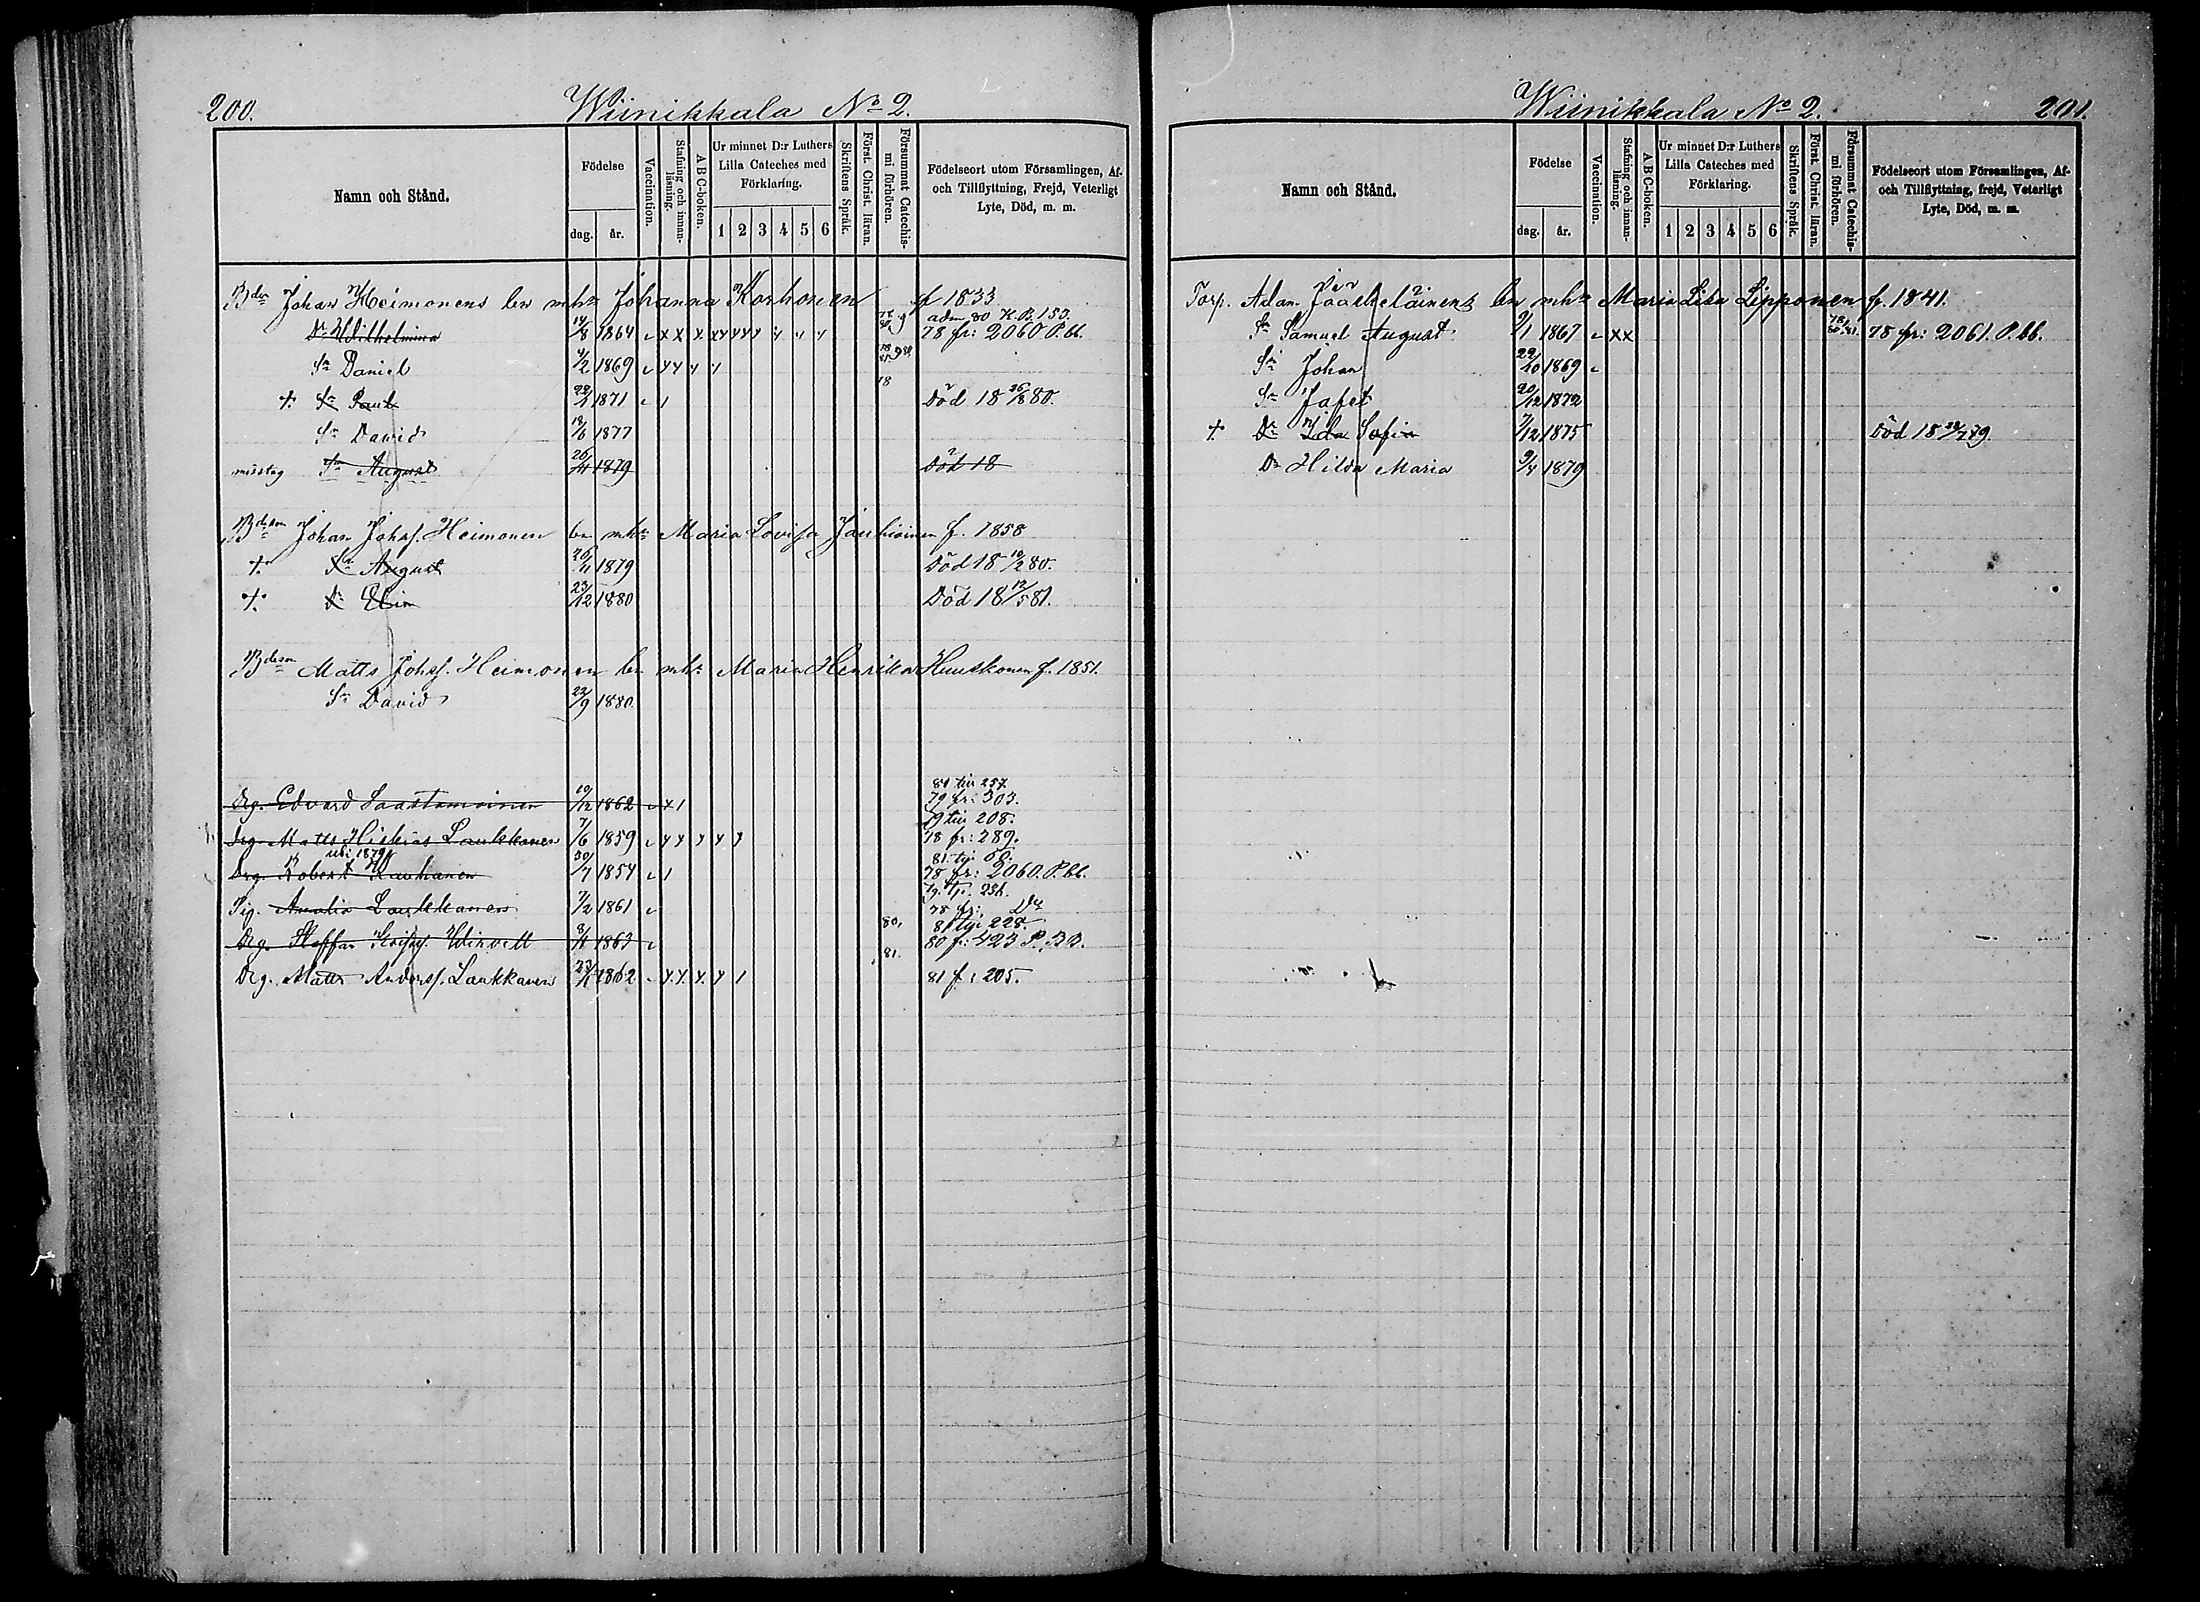 200. Wiinikkala No 2.
Namn och Stånd.
Födelse
dag. år.
Vaccination.
Stafning och innan-läsning.
ABC-boken.
Ur minnet D:r Luthers Lilla Cateches med Förklaring.
1 2 3 4 5 6
Skriftens Språk.
Först. Christ. läran.
Försummat Catechis-mi förhören.
Födelseort utom Församlingen, Af-
och Tillflyttning, Frejd, Veterligt
Lyte, Död, m. m.
Johan Heimonens Johanna Korhonen f 1833
adm 80 K.B. 153.
Dr Wilhelmina 14/8 1864 78 fr: 2060 P.bb.
Sn Daniel 4/2 1869
+. Sn Paul 1871 Död 18 26/8 80.
Sn David 1877
misstag Sn August 26/11 1879 Död 18
Johan Johsf. Heimonen Maria Lovisa f. 1858
+. Sn August 26/11 1879 Död 18 80.
+. 23/12 1880 Död 18 81.
Matts Johsf. Heimonen Maria Henrika Huuskonen f. 1851.
Sn David 22/9 1880.
81 till 257.
Drg. Edvard Saastamoinen 1862 79 fr: 303.
79 till 208.
Drg. Matts Laukkanen 7/6 1859 78 fr: 289.
Drg. Robert 30/7 1854 78 fr: 2060. P.bb.
Pig. Amalia Laukkanen 7/2 1861 78 fr:
80. 81 228.
Drg. Staffan 1863 80 fr: 423 P.BB.
81.
Drg. Matts Andersf. Laukkanen 1862 81 f: 205.
Wiinikkala No 2. 201.
Namn och Stånd.
Födelse
dag. år.
Vaccination.
Stafning och innan-läsning.
ABC-boken.
Ur minnet D:r Luthers Lilla Cateches med Förklaring.
1 2 3 4 5 6
Skriftens Språk.
Först. Christ. läran.
Försummat Catechis-mi förhören.
Födelseort utom Församlingen, Af-
och Tillflyttning, frejd, Veterligt
Lyte, Död, m. m.
Torp. Adam Maria Lisa Lipponen f. 1841.
Sn Samuel August 1867 78 fr: 2061. P.bb.
Sn Johan 22/10 1869
Sn Jafet 20/12 1872
+ Dr Ida Sofia 7/12 1875 Död 18 79.
Dr Hilda Maria 9/4 1879